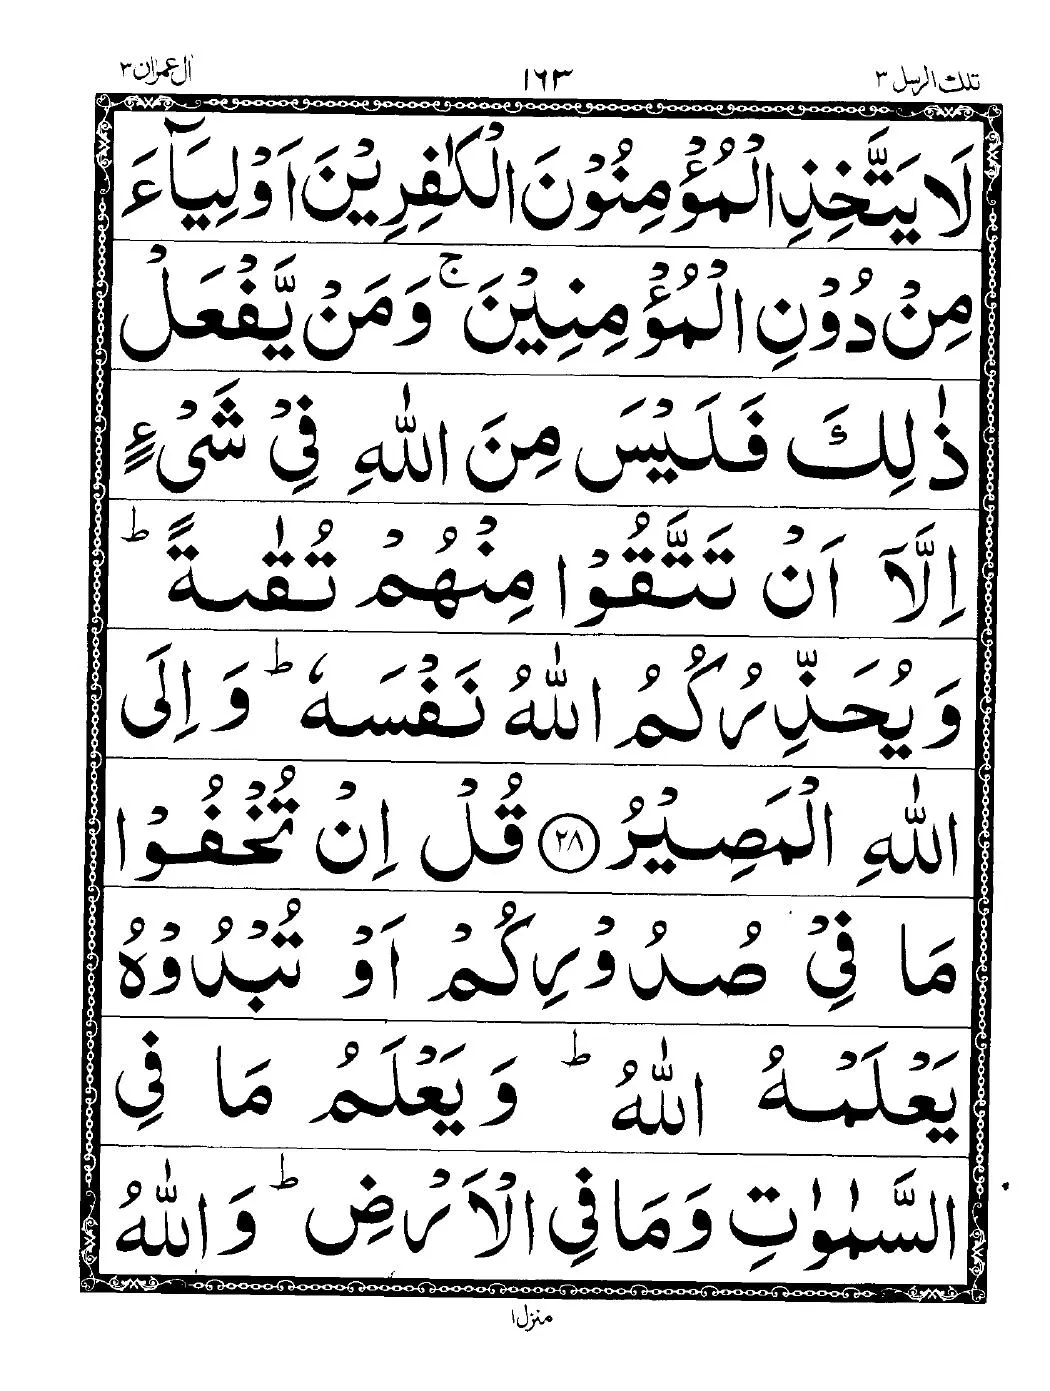 تلك الرسل ٣
١٦٣
اٰل عمرٰن ٣
لَا یَتَّخِذِ الْمُؤْمِنُوْنَ الْكٰفِرِیْنَ اَوْلِیَآءَ
مِنْ دُوْنِ الْمُؤْمِنِیْنَ ۚ وَ مَنْ یَّفْعَلْ
ذٰلِكَ فَلَیْسَ مِنَ اللّٰهِ فِیْ شَیْءٍ
اِلَّاۤ اَنْ تَتَّقُوْا مِنْهُمْ تُقٰىةً ؕ
وَ یُحَذِّرُكُمُ اللّٰهُ نَفْسَهٗ ؕ وَ اِلَى
اللّٰهِ الْمَصِیْرُ ﴿۲۸﴾ قُلْ اِنْ تُخْفُوْا
مَا فِیْ صُدُوْرِكُمْ اَوْ تُبْدُوْهُ
یَعْلَمْهُ اللّٰهُ ؕ وَ یَعْلَمُ مَا فِی
السَّمٰوٰتِ وَ مَا فِی الْاَرْضِ ؕ وَ اللّٰهُ
منزل ١